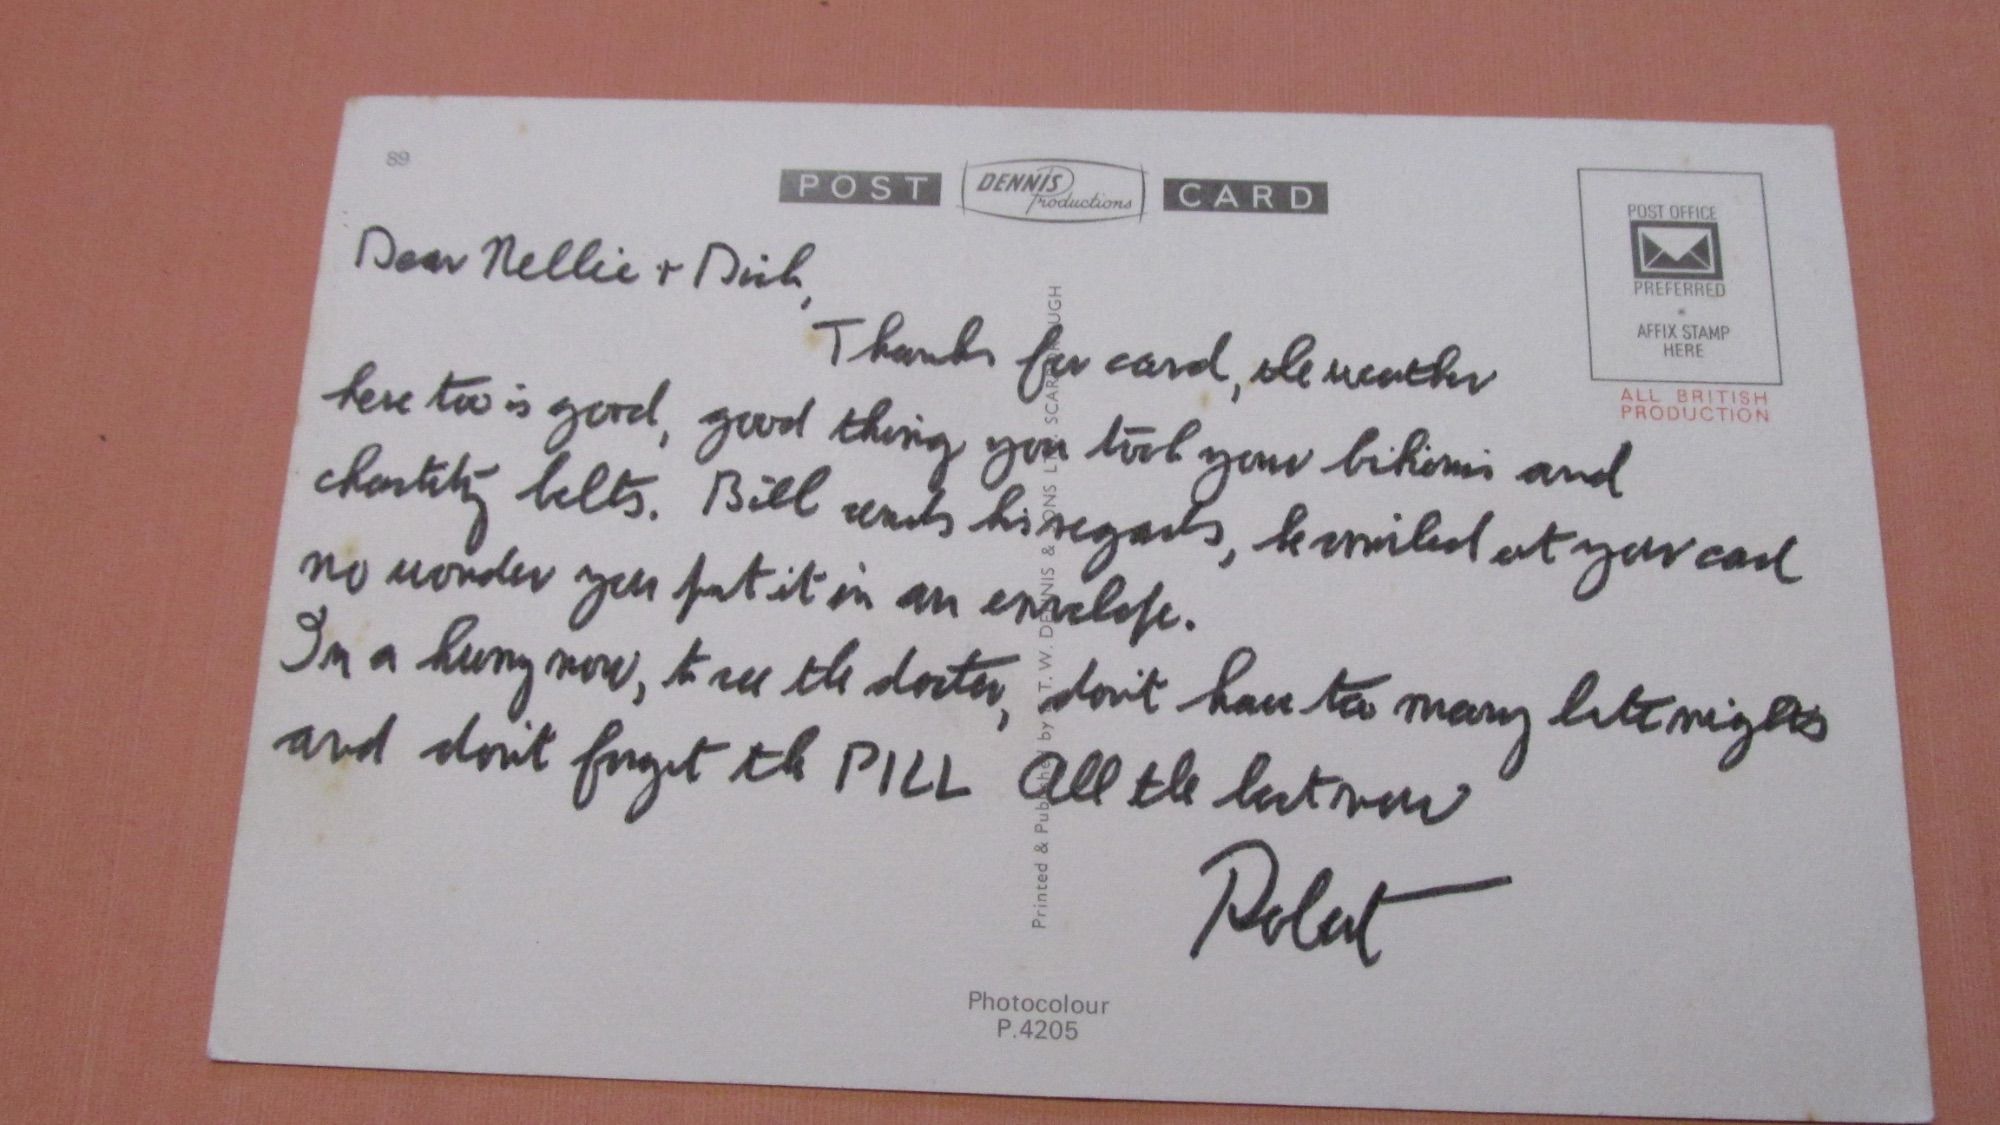 89
POST DENNIS Productions CARD
POST OFFICE
PREFERRED
AFFIX STAMP
HERE
ALL BRITISH
PRODUCTION
Dear Nellie + Dick,
Thanks for card, the weather
here too is good, good thing you took your bikinis and
chastity belts. Bill sends his regards, he smiled at your card
no wonder you put it in an envelope.
In a hurry now, to see the doctor, don't have too many late nights
and don't forget the PILL All the best now
Robert
Printed & Published by T. W. DENNIS & SONS LTD. SCARBOROUGH
Photocolour
P.4205